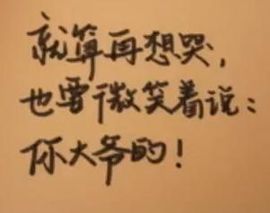 就算再想哭,
也要微笑着说:
你大爷的!